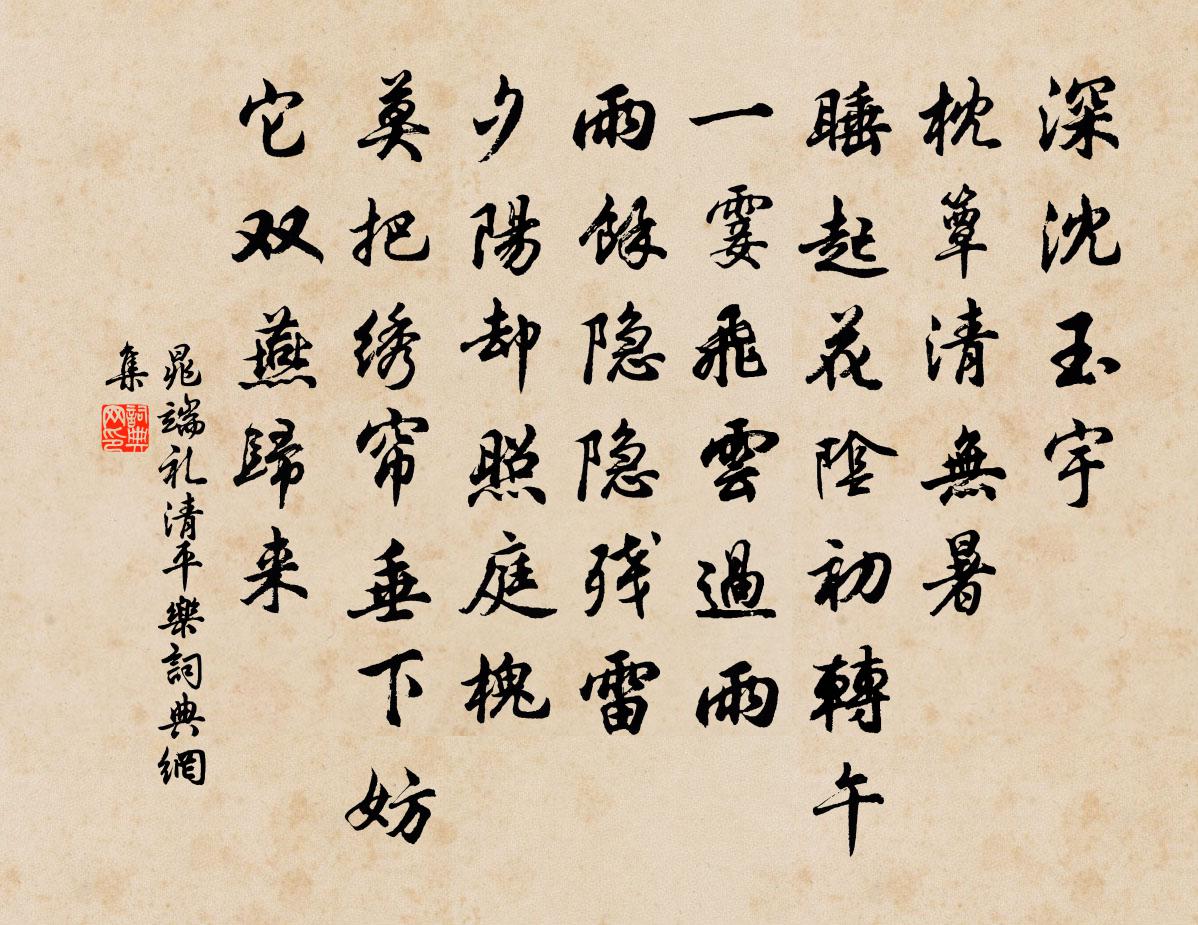 深沈玉宇
枕簟清無暑
睡起花陰初轉午
一霎飛雲過雨
雨餘隐隐残雷
夕陽却照庭槐
莫把绣帘垂下妨
它双燕歸来
晁端礼清平樂詞典網
集
詞典
网印